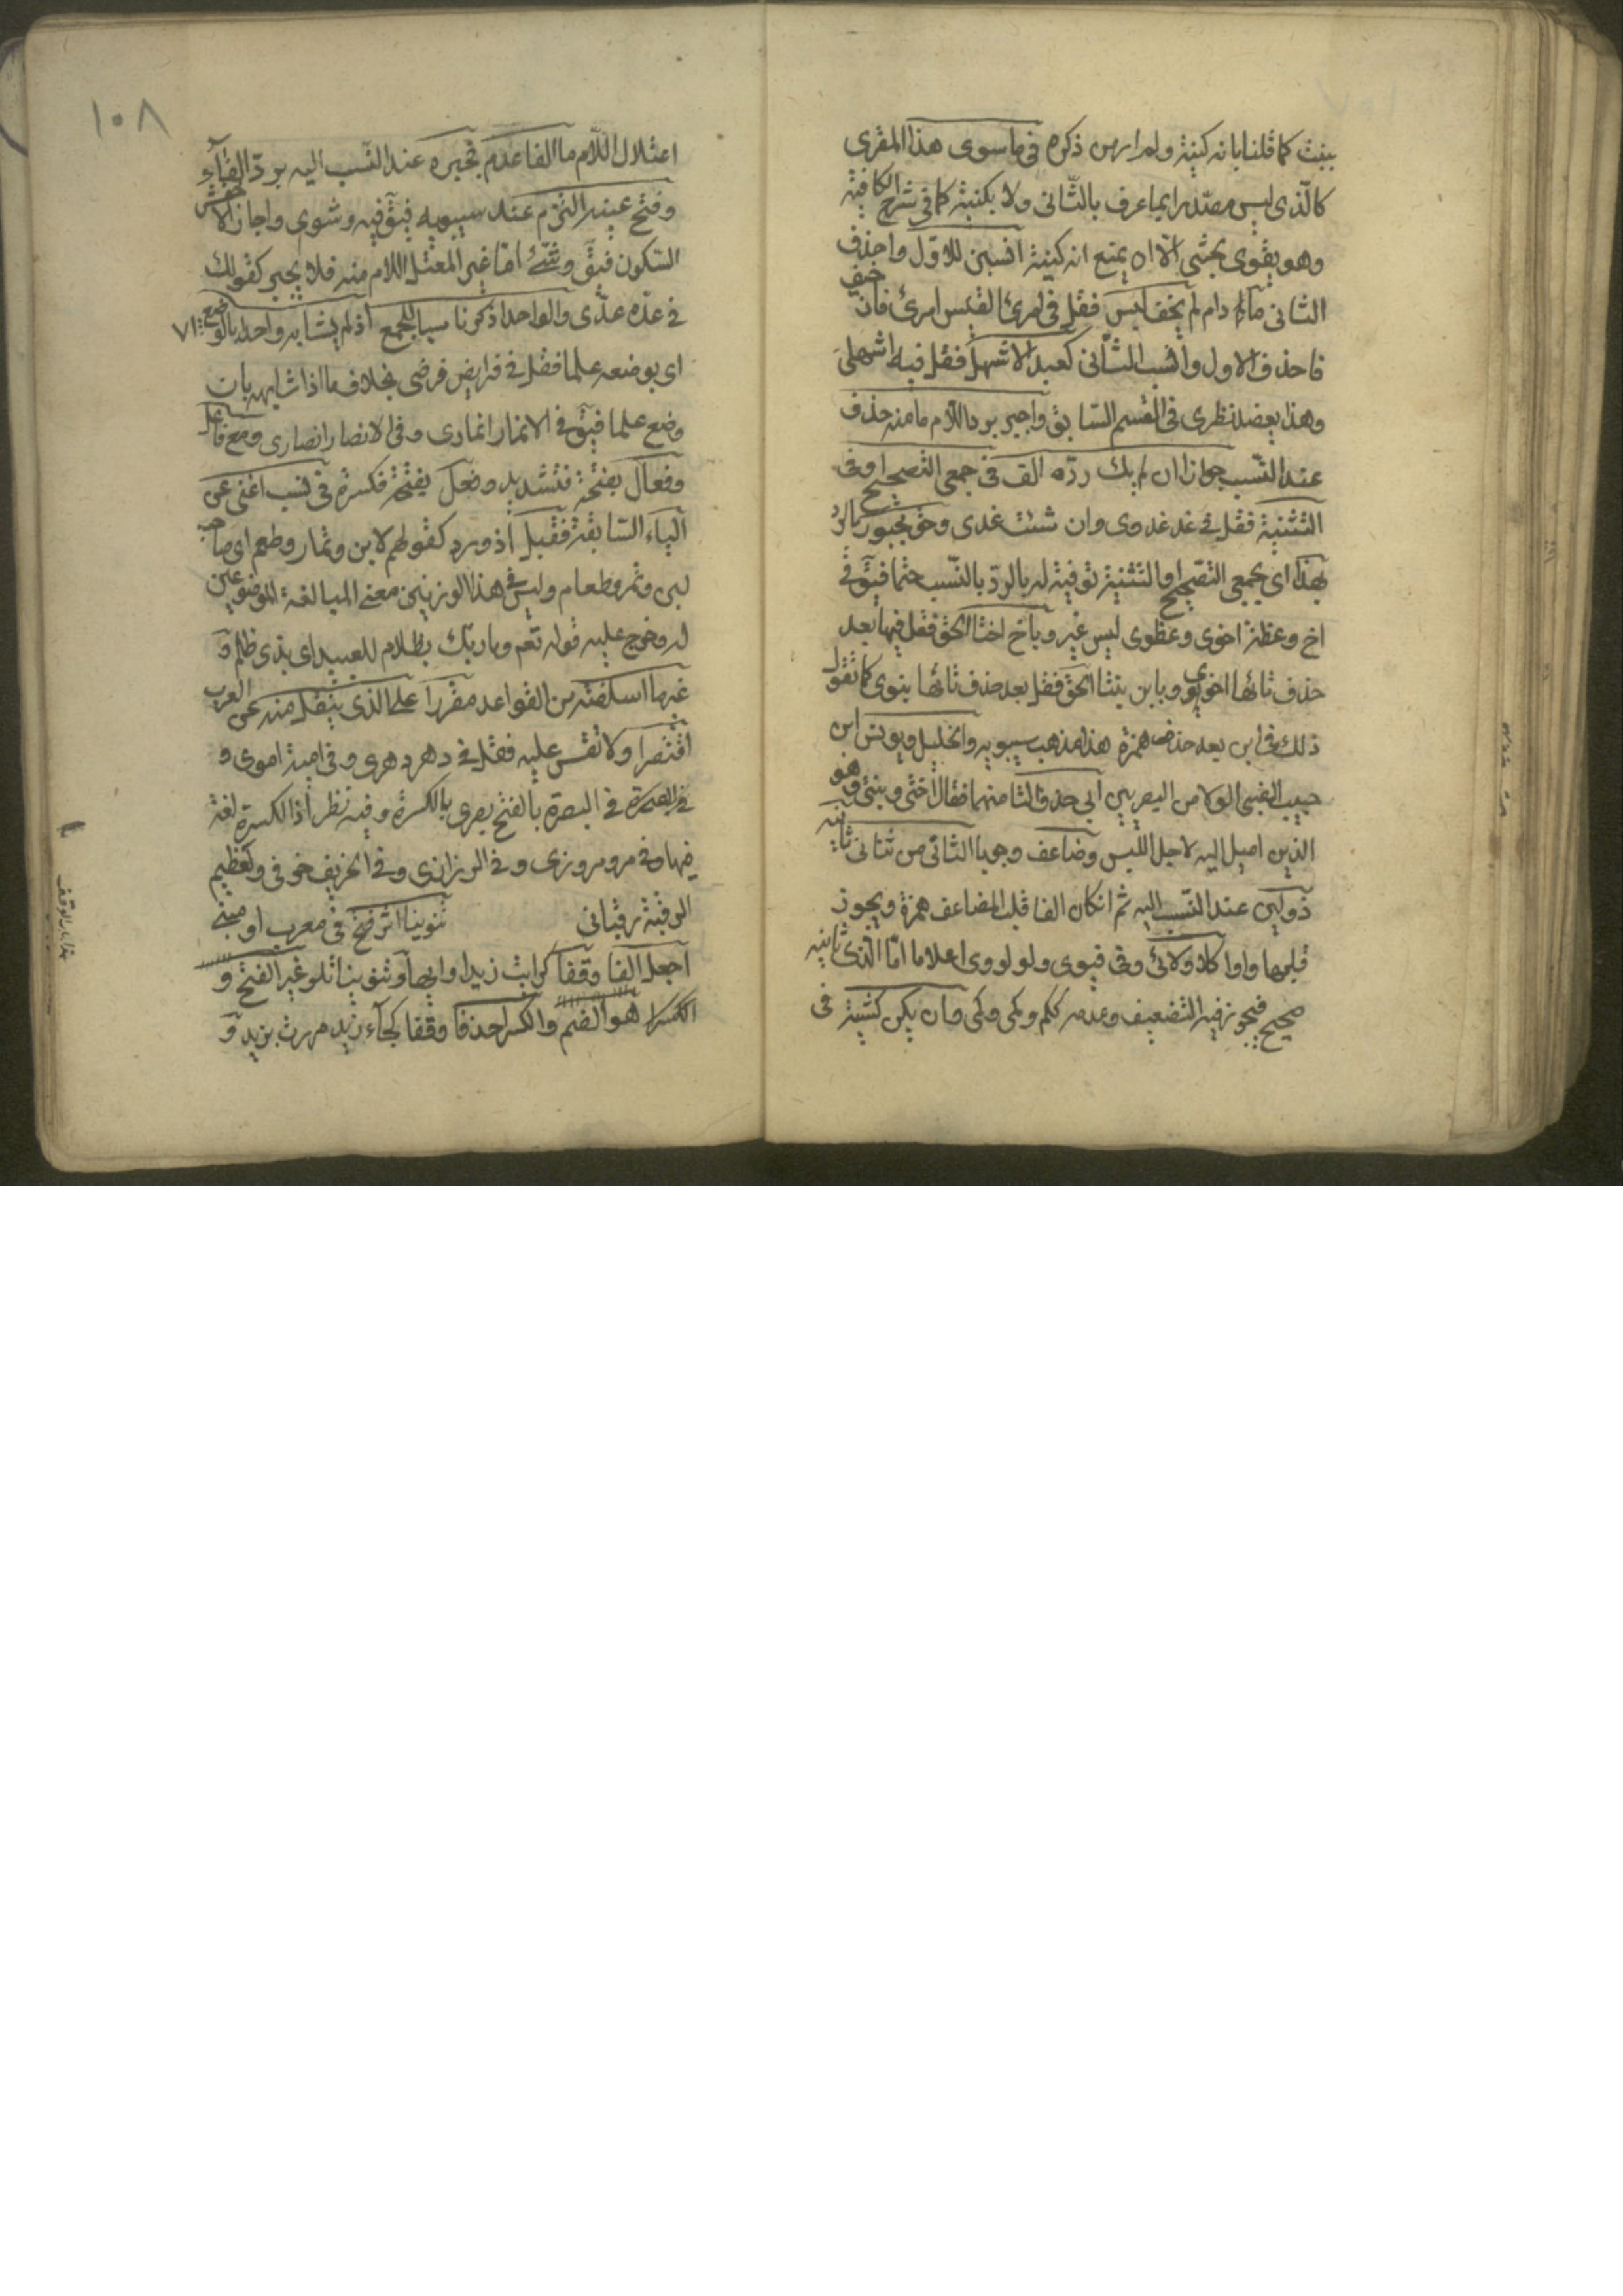 ببنت كما قلنا بانه كنية ولم ار من ذكره فى ما سوى هذا المقرى
كالّذى ليس مصدّرا بما عرف بالثّانى ولا بكنية كما فى شرح الكافية
وهو يقوى بحثى الّا ان يمنع انه كنية انسبن للاوّل واحذف
الثانى مالم دام لم يخف لبس فقل فى امرئ القيس امرئ فان خيف
فاحذف الاول وانسب للثّانى كعبد الاشهل فقل فيه اشهلى
وهذا يعضد نظرى فى القسم السّابق واجبر بردّ اللّام ما منه حذف
عند النّسب جوازا ان لم يك ردّه الف فى جمعى التصحيح او فى
التّثنية فقل فى غد غدوى وان شئت غدى وحق مجبور بالردّ
بهذا اى بجمعى التصحيح او التثنية توفية له بالردّ بالنّسب حتما فيق فى
اخ وعظة اخوى وعظوى ليس غير وباخ اختا الحق فقل فيها بعد
حذف تائها اخوى وبابن بنتا الحق فقل بعد حذف تائها بنوى كما تقول
ذلك فى ابن بعد حذف همزة هذا مذهب سيبويه والخليل ويونس ابن
حبيب الضبى الولا من البصريين ابى حذف التا منهما فقال اختى وبنتى وهو
الذين اميل اليه لاجل اللبس وضاعف وجوبا الثانى من ثنائى ثانيه
ذو لين عند النّسب اليه ثم ان كان الفا قلب المضاعف همزة ويجوز
قلبها واوا كلا ولائى وفى فيوى ولو لووى اعلاما امّا الّذى ثانيه
صحيح فيجوز فيه التضعيف وعدمه ككم وكمى وكمى وان يكن كشية فى
١٠٨
اعتلال اللّام ما الفا عدم فجبره عند النّسب اليه بردّ الفآء
وفتح عينه التزم عند سيبويه فيق فيه وشوى واجاز الاخفش
السّكون فيق وشيئ امّا غير المعتل اللام منه فلا يجبر كقولك
فى عدة عدّى والواحد اذكر ناسبا للجمع اذ لم يشابه واحدا بالوضع ٧١
اى بوضعه علما فقل فى فرايض فرضى بخلاف ما اذا شابهه بان
وضع علما فيق فى الانمار انمارى وفى الانصار انصارى ومع فاعل
وفعّال بفتحة فتشديد وفعل بفتحة فكسرة فى نسب اغنى عن
الياء السّابقة فقبل اذ ورد كقولهم لابن وتمار وطعم اى صاحب
لبن وتمر وطعام وليس فى هذا الوزنين معنى المبالغة الموضوعين
له وخرج عليه قوله تعم وما ربّك بظلام للعبيد اى بذى ظلم و
غير ما اسلفته من القواعد مقررا على الذى ينقل منه عن العرب
اقتصرا ولا تقس عليه فقل فى دهر دهرى وفى امية اموى و
فى البصرة فى البصرة بالفتح بصرى بالكسرة وفيه نظر اذ الكسرة لغة
فيها وفى مرو مروزى وفى الرى رازى وفى الخريف خرفى وعظيم
الرقبة رقبانى تنوينا اثر فتح فى معرب او مبنى
اجعل الفا وقفا كرايت زيدا وايها وتنوينا تلو غير الفتح و
الكسرا هو الضم والكسر احذفا وقفا كجآء زيد مررت بزيد و
هذا باب الوقف